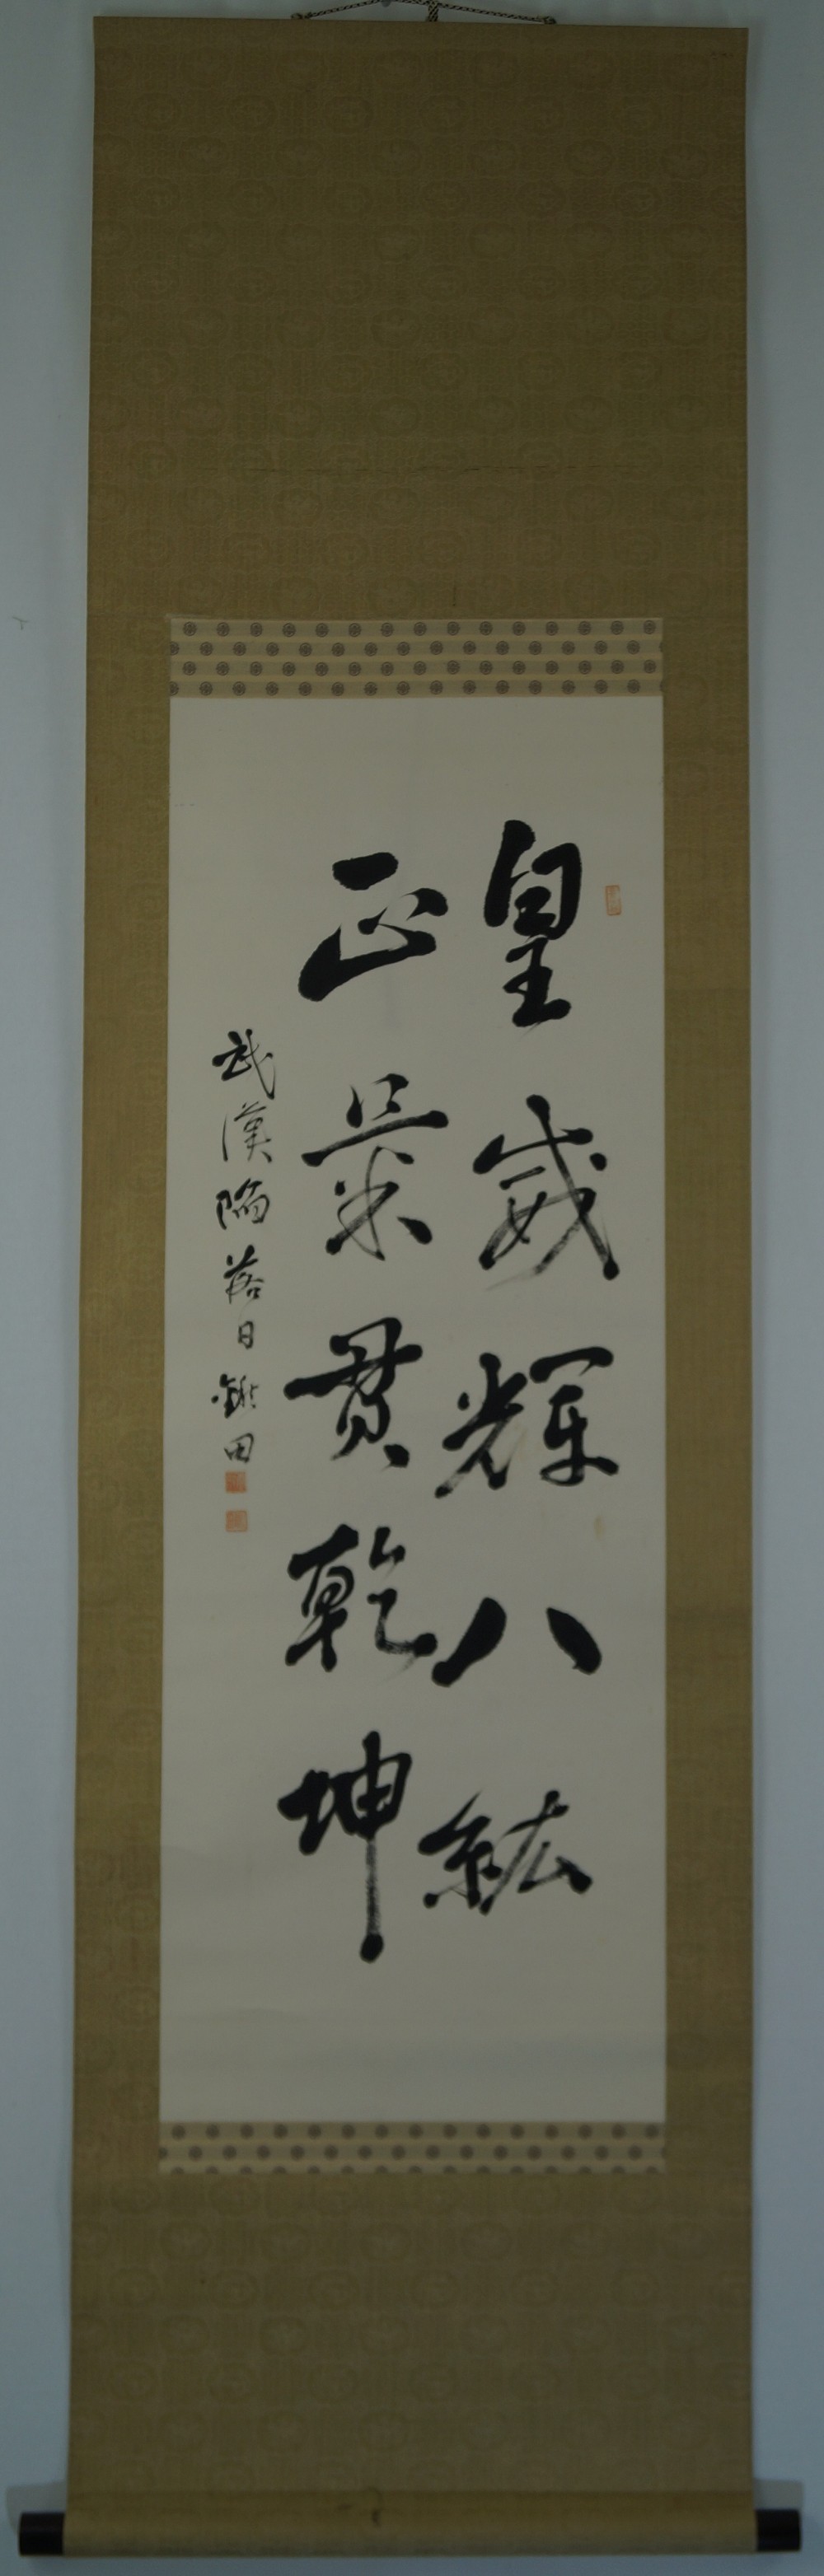 皇威輝八紘
正氣貫乾坤
武漢陥落日 鉄田